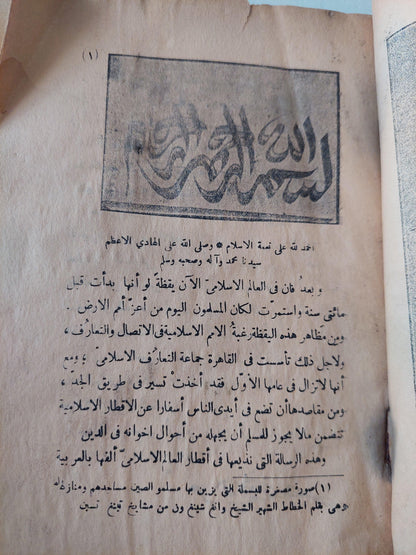 (١)
بسم الله الرحمن الرحيم
احمد لله على نعمة الاسلام * وصلى الله على الهادي الاعظم
سيدنا محمد وآله وصحبه وسلم
وبعدُ فان فى العالم الاسلامىّ الآن يقظةً لو أنها بدأت قبل
مائتى سنة واستمرّت لكان المسلمون اليوم من أعزّ أمم الارض.
ومن مظاهر هذه اليقظة رغبةُ الامم الاسلامية فى الاتصال والتعارُف،
ولاجل ذلك تأسست فى القاهرة جماعة التعارُف الاسلامى؛ ومع
أنها لاتزال فى عامها الأوّل فقد أخذتْ تسير فى طريق الجدّ،
ومن مقاصدها أن تضع فى أيدى الناس أسفارا عن الاقطار الاسلامية
تتضمن مالا يجوز للمسلم أن يجهله من أحوال اخوانه فى الدين
وهذه الرسالة التى نذيعها فى أقطار العالم الاسلامىّ ألفها بالعربية
(١) صورة مصغرة للبسملة التى يزين بها مسلمو الصين مساجدهم ومنازلهم
وهى بقلم الخطاط الشهير الشيخ وانغ شينغ ون من مشايخ تينغ تسين